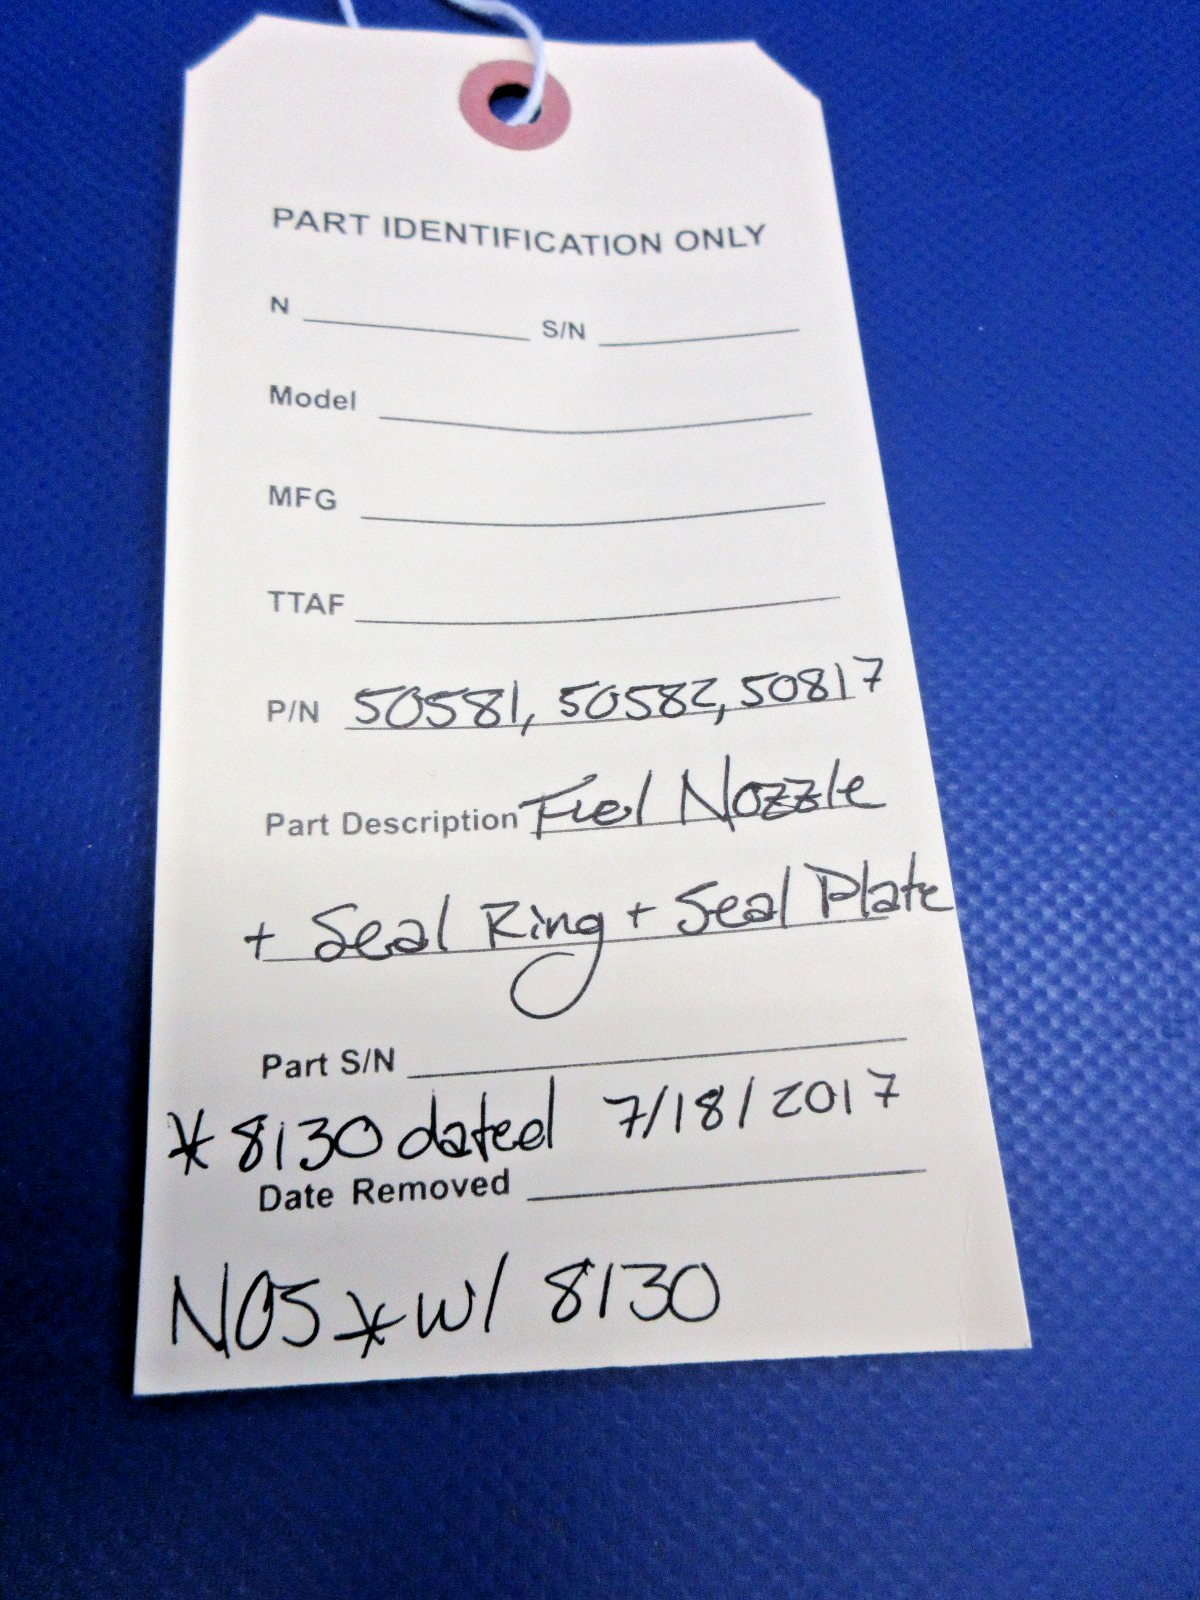 PART IDENTIFICATION ONLY
N S/N
Model
MFG
TTAF
P/N 50581, 50582, 50817
Part Description Fuel Nozzle
+ Seal Ring + Seal Plate
Part S/N
* 8130 dated 7/18/2017
Date Removed
NOS * w/ 8130